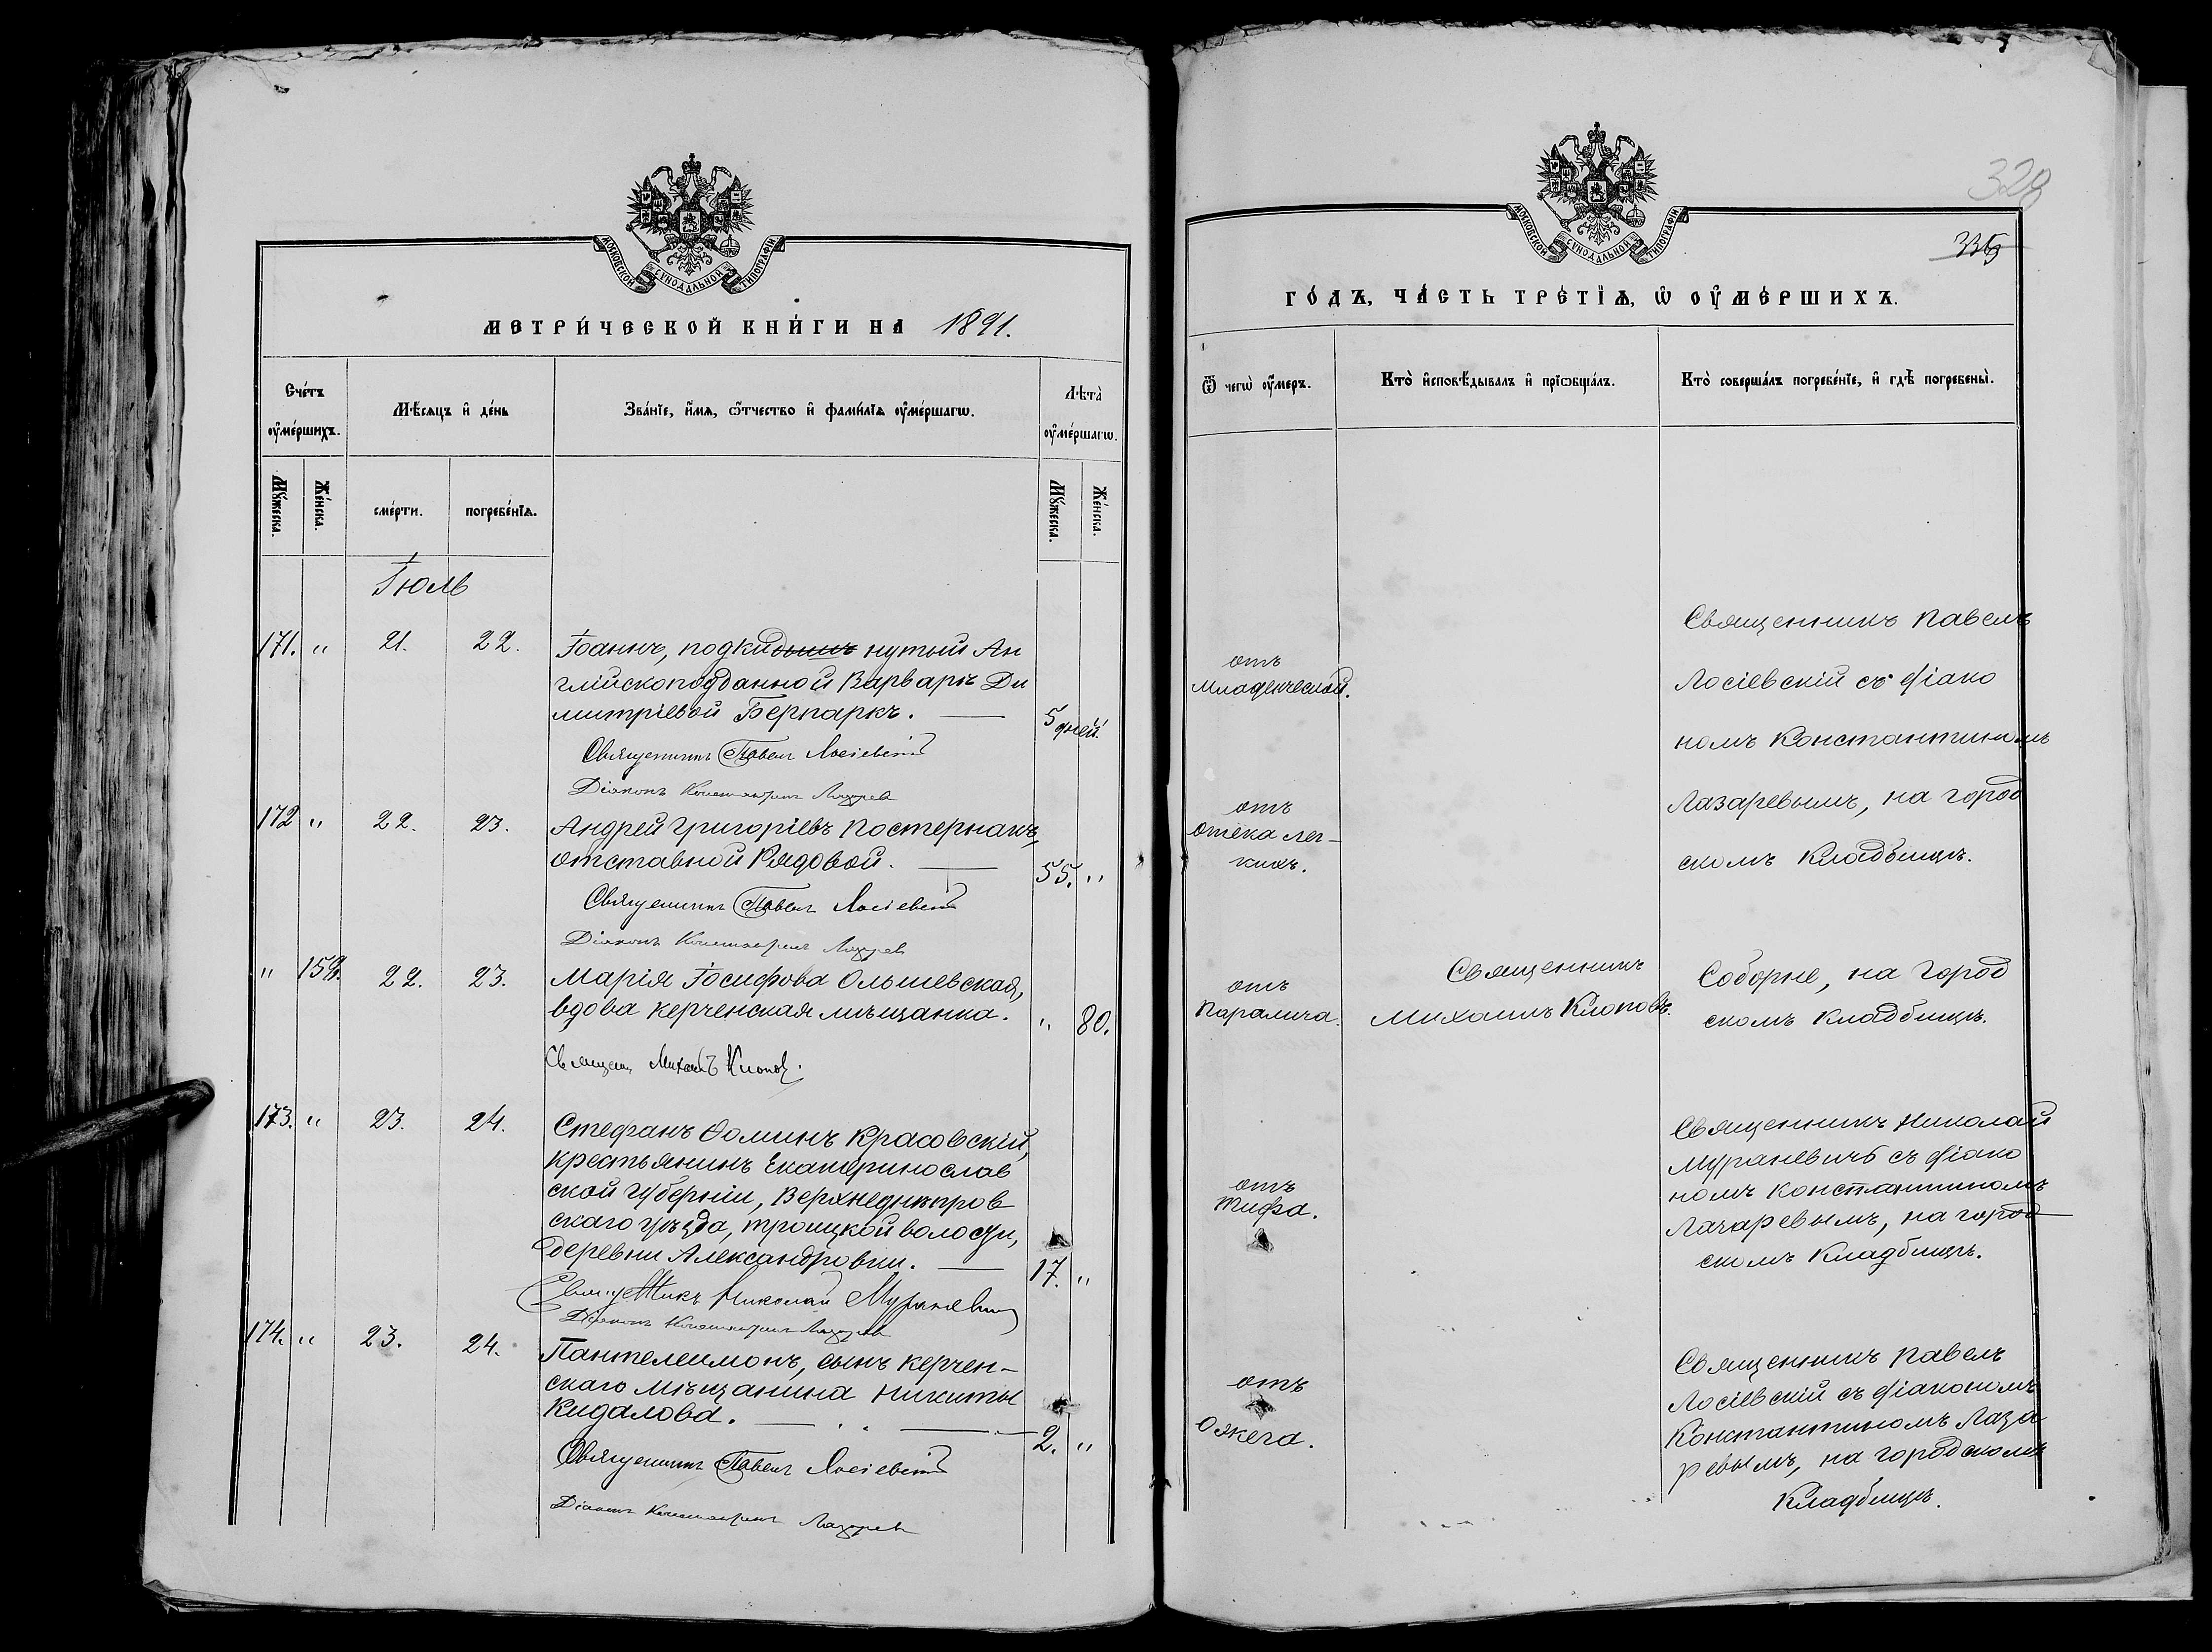 МОСКОВСКОЙ СѴНОДАЛЬНОЙ ТИПОГРАФІИ
МЕТРИ́ЧЕСКОЙ КНИ́ГИ НА 1891.
Сче́тъ ᲂу҆ме́ршихъ.
Мѣ́сѧцъ и҆ де́нь
Зва́нїе, и҆́мѧ, ѻ҆́тчество и҆ фами́лїѧ ᲂу҆ме́ршагѡ.
Лѣта̀ ᲂу҆ме́ршагѡ.
Мꙋ́жеска.
Же́нска.
сме́рти.
погребе́нїѧ.
Мꙋ́жеска.
Же́нска.
Іюль
171. " 21. 22. Іоаннъ, подкидышъ нутый Ан
глійскоподданной Варварѣ Ди
митріевой Берпаркъ. —
5 дней.
Священникъ Павелъ Лосіевскій
Діаконъ Константинъ Лазарев
172 " 22. 23. Андрей Григоріевъ Постернакъ,
отставной Рядовой. —
55. "
Священникъ Павелъ Лосіевскій
Діаконъ Константинъ Лазарев
" 159. 22. 23. Марія Іосифова Ольшевская,
вдова керченская мѣщанка.
" 80.
Священ. Михаилъ Клопов.
173. " 23. 24. Стефанъ Ѳоминъ Красовскій,
крестьянинъ Екатеринослав
ской Губерніи, Верхнеднѣпров
скаго уѣзда, троицкой волости,
деревни Александровки. —
17. "
Священникъ Николай Мураневич
Діаконъ Константинъ Лазарев
174. " 23. 24. Пантелеимонъ, сынъ керчен-
скаго мѣщанина Никиты
Кидалова. —
2. "
Священникъ Павелъ Лосіевскій
Діаконъ Константинъ Лазарев
329
МОСКОВСКОЙ СѴНОДАЛЬНОЙ ТИПОГРАФІИ
ГО́ДЪ, ЧА́СТЬ ТРЕ́ТЇѦ, Ѡ҆ ОУ҆МЕ́РШИХЪ.
Ѿ чегѡ̀ ᲂу҆́меръ.
Кто̀ и҆сповѣ́дывалъ и҆ прїѡбща́лъ.
Кто̀ соверша́лъ погребе́нїе, и҆ гдѣ̀ погребены̀.
отъ
младенческой.
Священникъ Павелъ
Лосіевскій съ діако
номъ Константиномъ
Лазаревымъ, на город
скомъ Кладбищѣ.
отъ
отека лег-
кихъ.
отъ
Паралича.
Священникъ
Михаилъ Клоповъ.
Соборне, на Город
скомъ кладбищѣ.
отъ
тифа.
Священникъ Николай
Мураневичъ съ діако
номъ Константиномъ
Лазаревымъ, на город
скомъ Кладбищѣ.
отъ
Ожега.
Священникъ Павелъ
Лосіевскій съ діакономъ
Константиномъ Лаза
ревымъ, на городскомъ
Кладбищѣ.